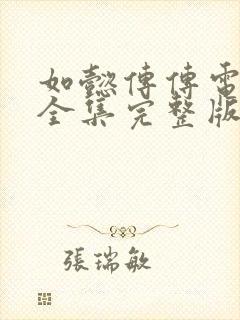 如懿傳傳電
全集完整版
張瑞敏